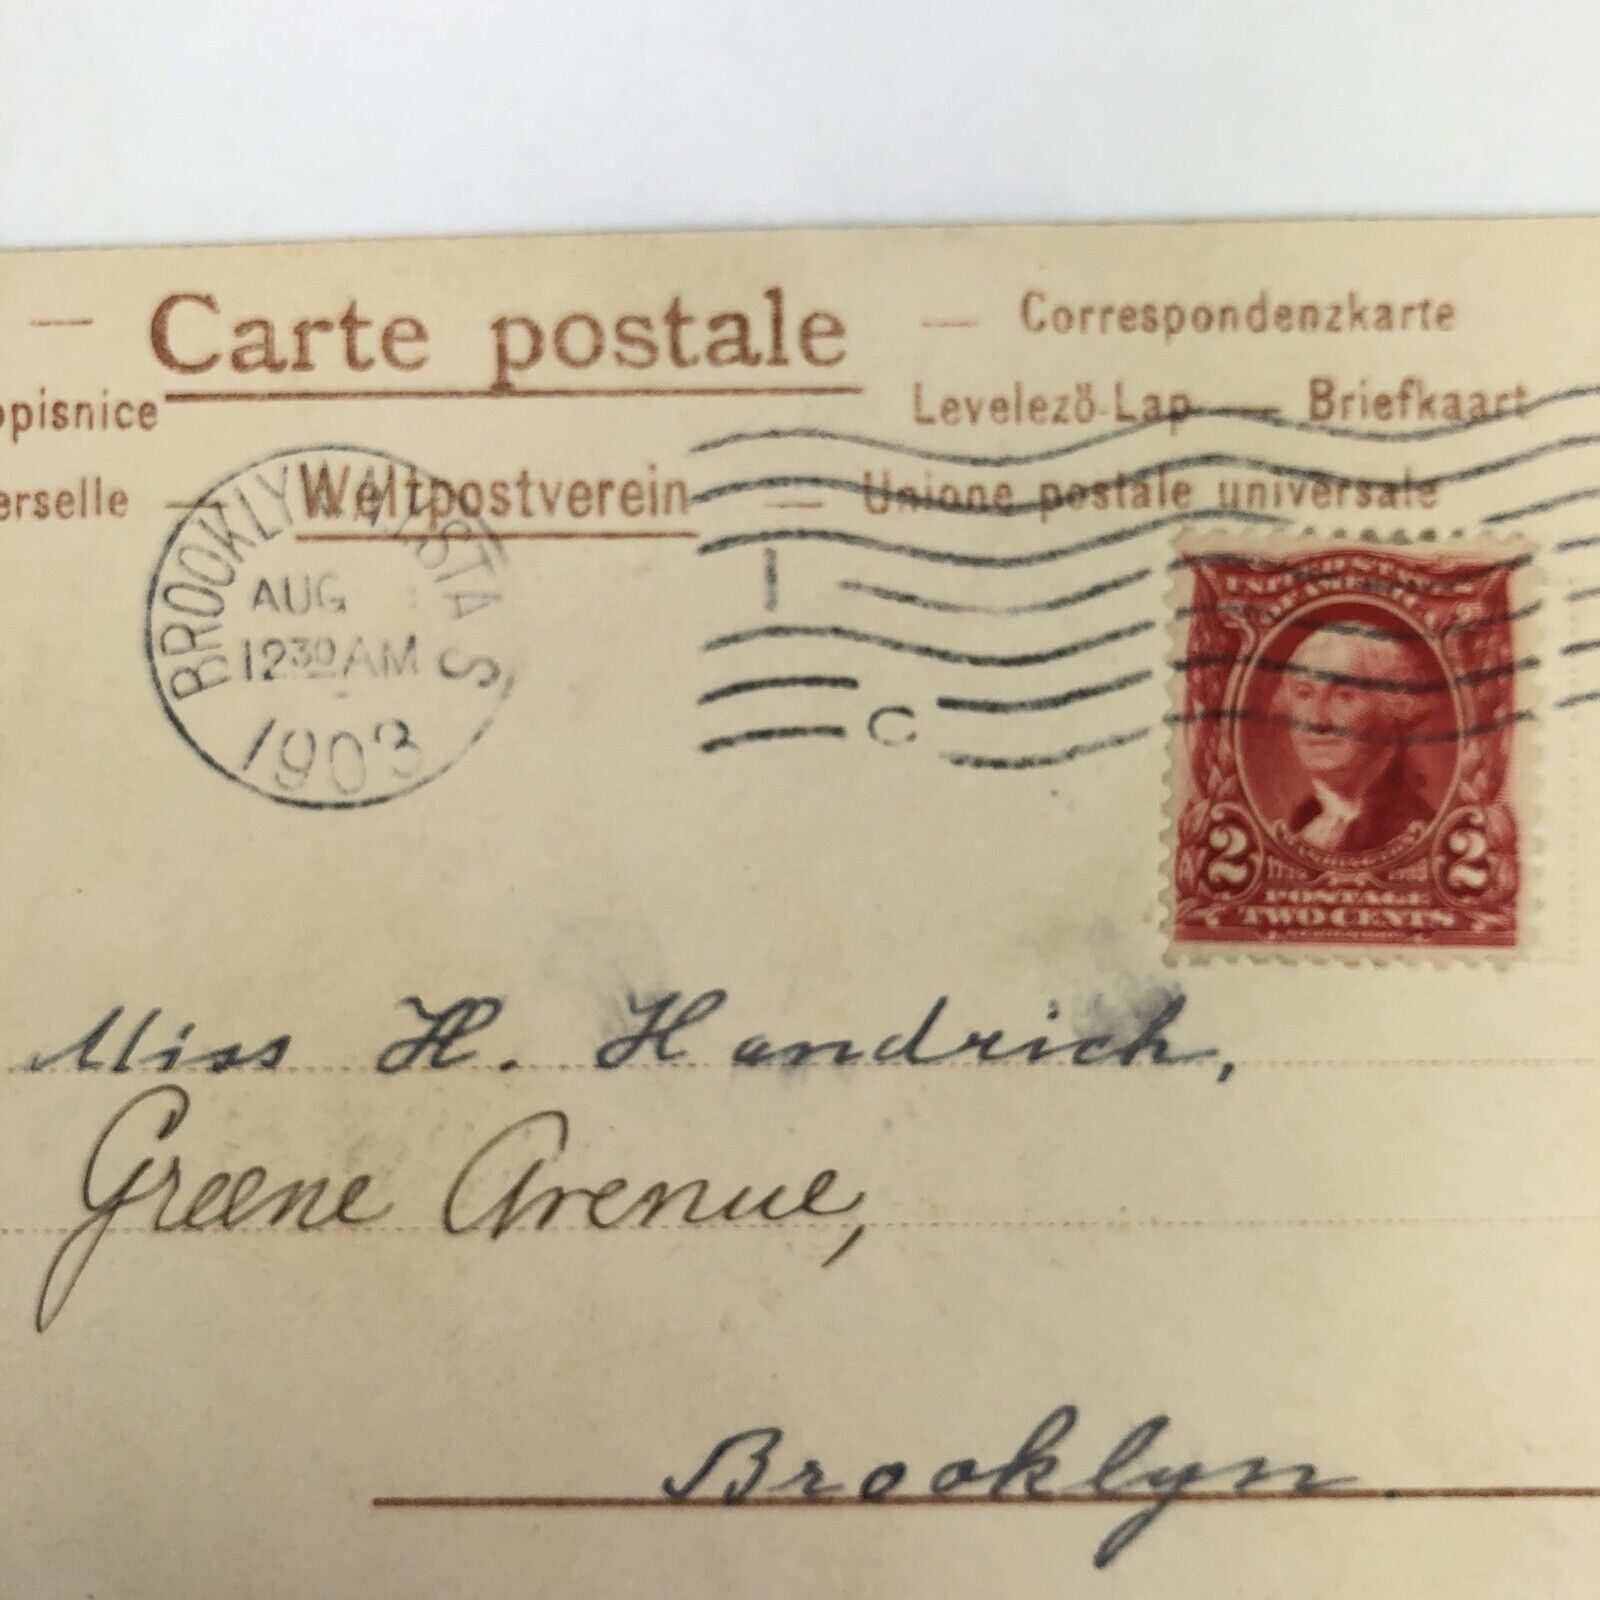 — Carte postale — Correspondenzkarte
opisnice Levelezö-Lap — Briefkaart
erselle — Weltpostverein — Unione postale universale
BROOKLYN STA S
AUG
12 30 AM
1903
I
C
WASHINGTON
2 2
POSTAGE
TWO CENTS
Miss H. Handrich,
Greene Avenue,
Brooklyn.